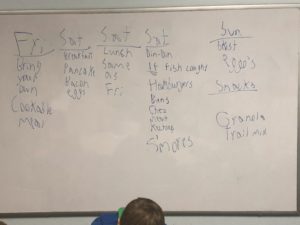 Fri
Bring
your
own
Cookable
meal
Sat
Breakfast
Pancake
Bacon
eggs
Sat
Lunch
Same
as
Fri
Sat
Din-Din
If fish caught
Hamburgers
Buns
Chez
Meat
Ketchup
S'mores
Sun
Brest
Eggo's
Snacks
Granola
Trail mix